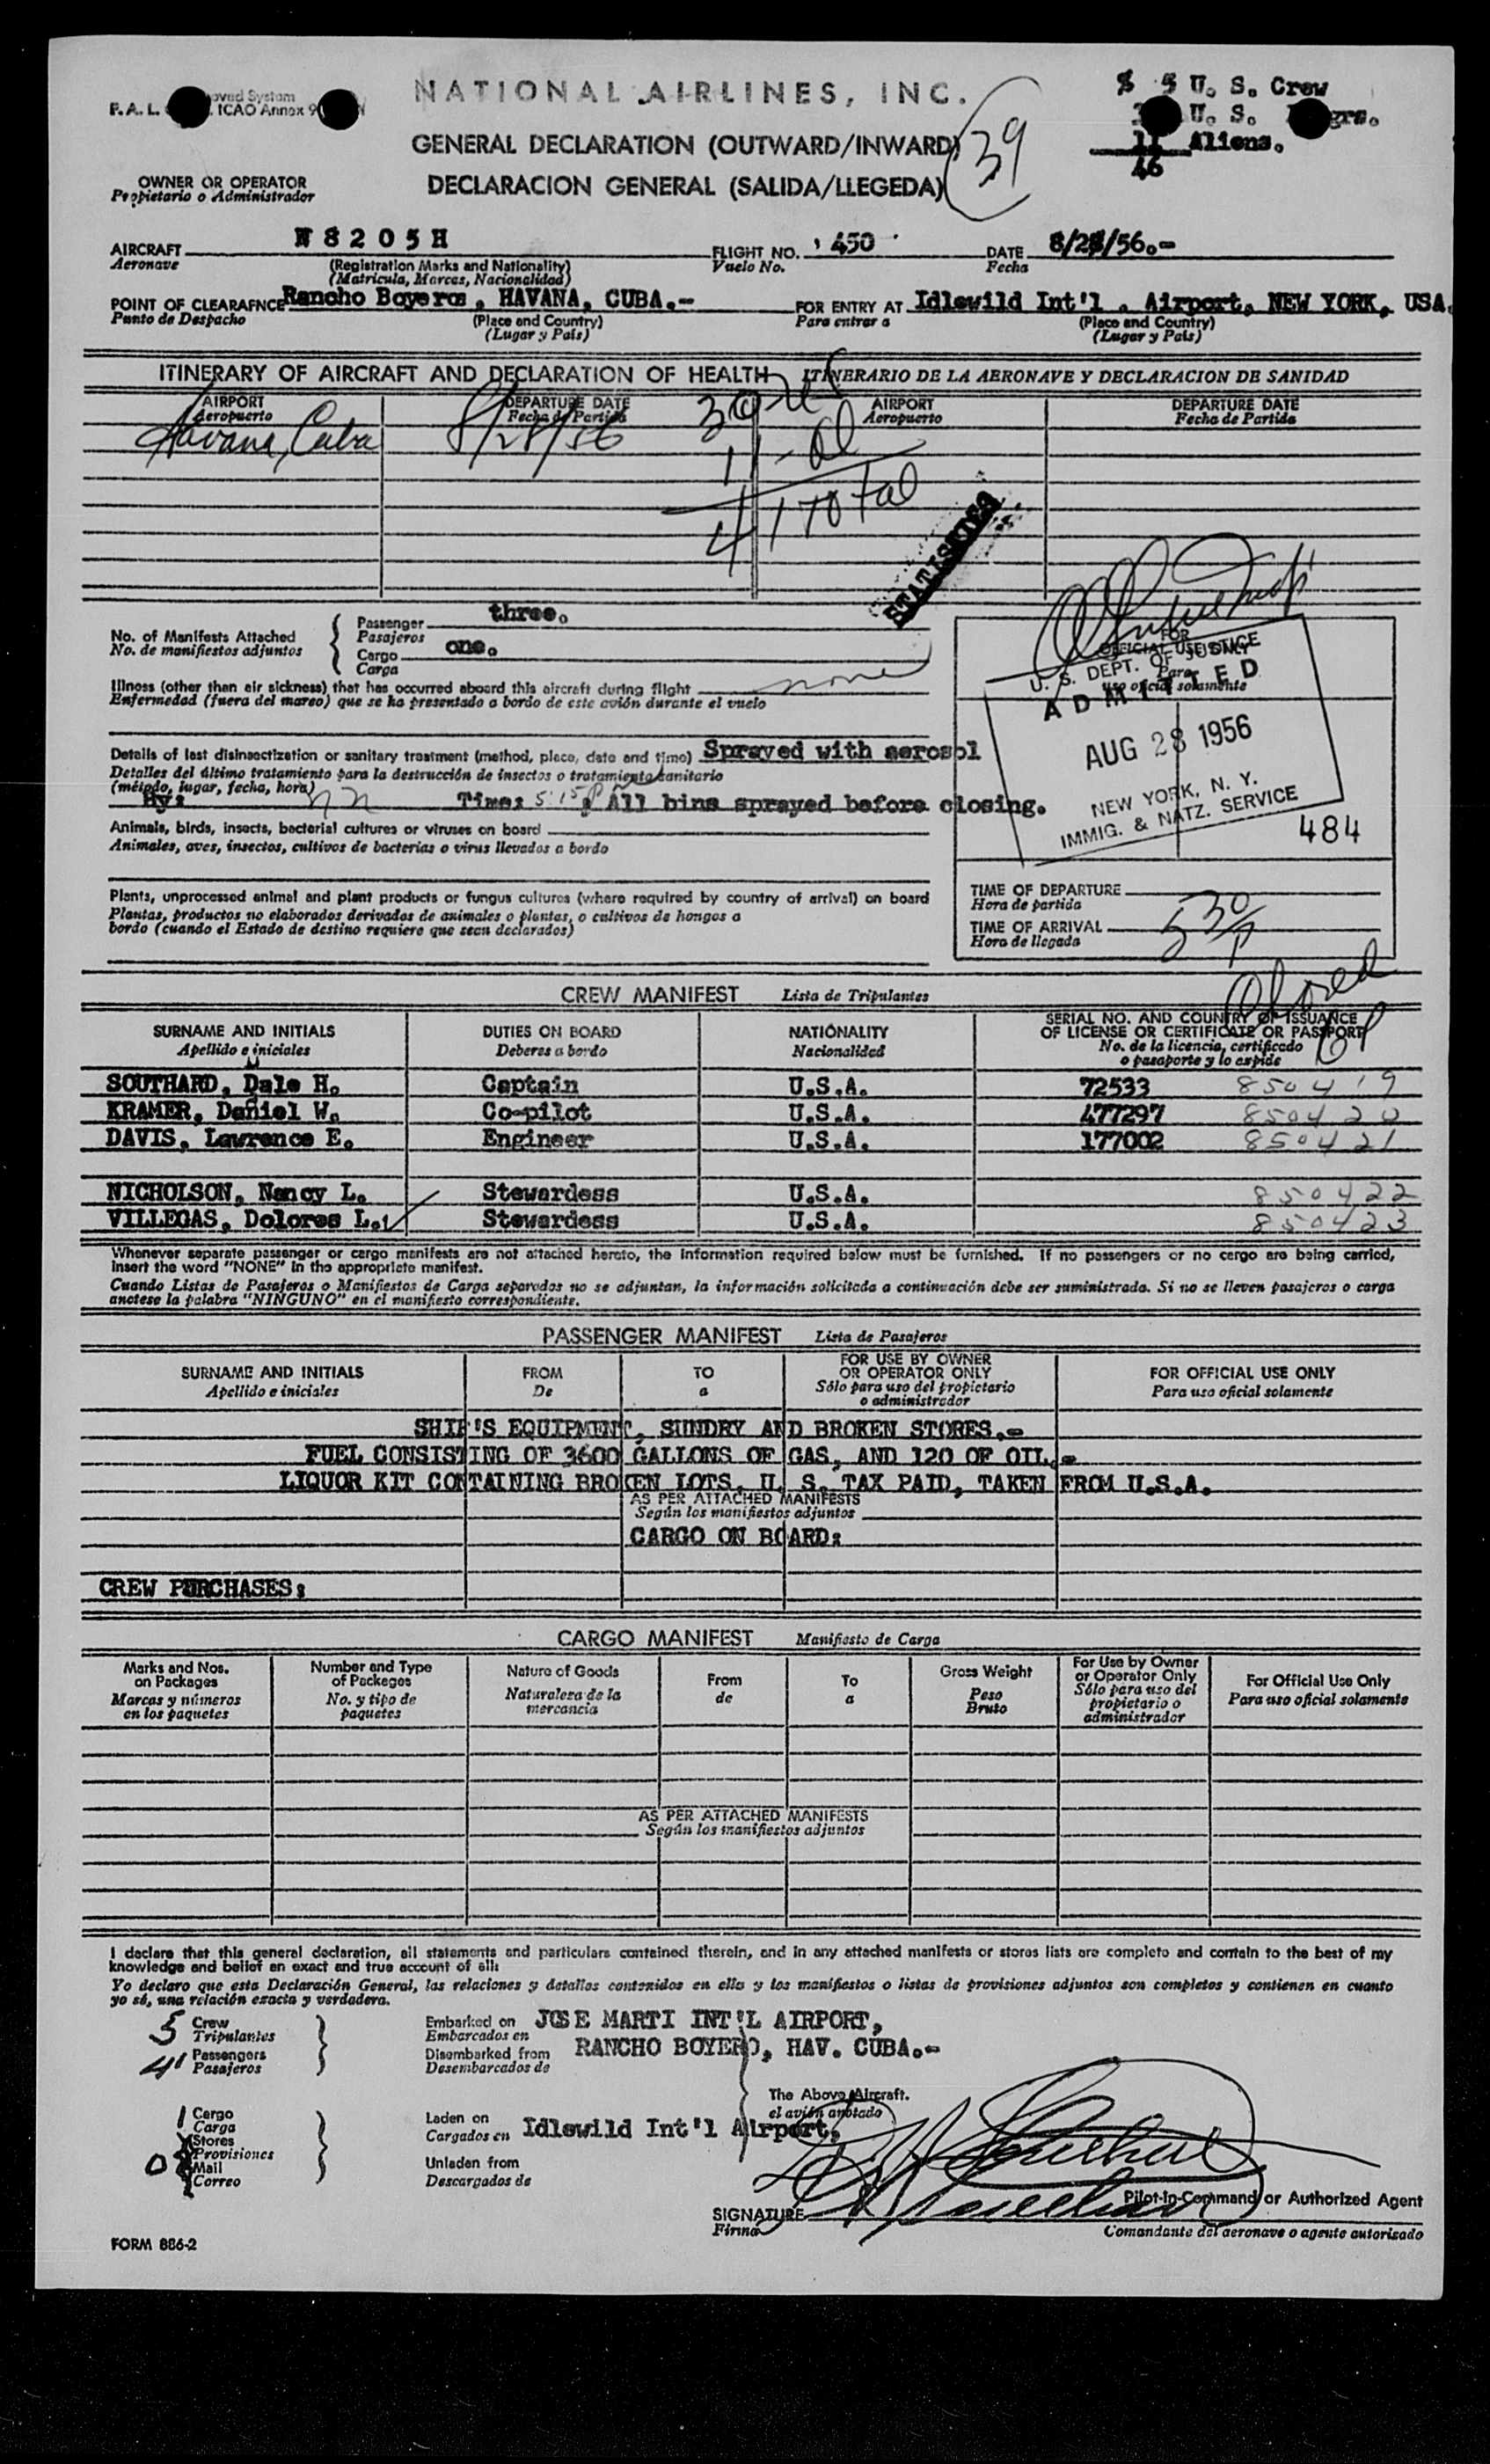 NATIONAL AIRLINES, INC.
5 U. S. Crew
F. A. L. oved System
ICAO Annex 9
U. S. grs.
GENERAL DECLARATION (OUTWARD/INWARD)
39
11 Aliens.
46
OWNER OR OPERATOR
Propietario o Administrador
DECLARACION GENERAL (SALIDA/LLEGEDA)
AIRCRAFT N8205H FLIGHT NO. 450 DATE 8/28/56.-
Aeronave (Registration Marks and Nationality) Vuelo No. Fecha
(Matricula, Marcas, Nacionalidad)
POINT OF CLEARAFNCE Rancho Boyeros, HAVANA, CUBA.- FOR ENTRY AT Idlewild Int'l. Airport, NEW YORK, USA.
Punto de Despacho (Place and Country) Para entrar a (Place and Country)
(Lugar y País) (Lugar y País)
ITINERARY OF AIRCRAFT AND DECLARATION OF HEALTH ITINERARIO DE LA AERONAVE Y DECLARACION DE SANIDAD
AIRPORT DEPARTURE DATE AIRPORT DEPARTURE DATE
Aeropuerto Fecha de Partida Aeropuerto Fecha de Partida
Havana, Cuba 8/28/56 30
11 - al
41 Total
STATISTICS
No. of Manifests Attached
No. de manifiestos adjuntos
Passenger three.
Pasajeros
Cargo one.
Carga
Illness (other than air sickness) that has occurred aboard this aircraft during flight none
Enfermedad (fuera del mareo) que se ha presentado a bordo de este avión durante el vuelo
FOR
OFFICIAL USE ONLY
Para
uso oficial solamente
U. S. DEPT. OF JUSTICE
ADMITTED
AUG 28 1956
NEW YORK, N. Y.
IMMIG. & NATZ. SERVICE
484
Details of last disinsectization or sanitary treatment (method, place, date and time) Sprayed with aerosol
Detalles del último tratamiento para la destrucción de insectos o tratamiento sanitario
(método, lugar, fecha, hora)
By: Time: 5:15P. All bins sprayed before closing.
Animals, birds, insects, bacterial cultures or viruses on board
Animales, aves, insectos, cultivos de bacterias o virus llevados a bordo
Plants, unprocessed animal and plant products or fungus cultures (where required by country of arrival) on board
Plantas, productos no elaborados derivados de animales o plantas, o cultivos de hongos a
bordo (cuando el Estado de destino requiere que sean declarados)
TIME OF DEPARTURE
Hora de partida
TIME OF ARRIVAL 530P
Hora de llegada
CREW MANIFEST Lista de Tripulantes
SURNAME AND INITIALS DUTIES ON BOARD NATIONALITY SERIAL NO. AND COUNTRY OF ISSUANCE
OF LICENSE OR CERTIFICATE OR PASSPORT
Apellido e iniciales Deberes a bordo Nacionalidad No. de la licencia, certificado
o pasaporte y lo expide
SOUTHARD, Dale H. Captain U.S.A. 72533 850419
KRAMER, Daniel W. Co-pilot U.S.A. 477297 850420
DAVIS, Lawrence E. Engineer U.S.A. 177002 850421
NICHOLSON, Nancy L. Stewardess U.S.A. 850422
VILLEGAS, Dolores L. Stewardess U.S.A. 850423
Whenever separate passenger or cargo manifests are not attached hereto, the information required below must be furnished. If no passengers or no cargo are being carried,
insert the word "NONE" in the appropriate manifest.
Cuando Listas de Pasajeros o Manifiestos de Carga separados no se adjuntan, la información solicitada a continuación debe ser suministrada. Si no se lleven pasajeros o carga
anotese la palabra "NINGUNO" en el manifiesto correspondiente.
PASSENGER MANIFEST Lista de Pasajeros
SURNAME AND INITIALS FROM TO FOR USE BY OWNER
OR OPERATOR ONLY FOR OFFICIAL USE ONLY
Apellido e iniciales De a Sólo para uso del propietario
o administrador Para uso oficial solamente
SHIP'S EQUIPMENT, SUNDRY AND BROKEN STORES.-
FUEL CONSISTING OF 3600 GALLONS OF GAS, AND 120 OF OIL.-
LIQUOR KIT CONTAINING BROKEN LOTS, U. S. TAX PAID, TAKEN FROM U.S.A.
AS PER ATTACHED MANIFESTS
Según los manifiestos adjuntos
CARGO ON BOARD:
CREW PURCHASES:
CARGO MANIFEST Manifiesto de Carga
Marks and Nos.
on Packages
Marcas y números
en los paquetes
Number and Type
of Packages
No. y tipo de
paquetes
Nature of Goods
Naturaleza de la
mercancia
From
de
To
a
Gross Weight
Peso
Bruto
For Use by Owner
or Operator Only
Sólo para uso del
propietario o
administrador
For Official Use Only
Para uso oficial solamente
AS PER ATTACHED MANIFESTS
Según los manifiestos adjuntos
I declare that this general declaration, all statements and particulars contained therein, and in any attached manifests or stores lists are complete and contain to the best of my
knowledge and belief an exact and true account of all:
Yo declaro que esta Declaración General, las relaciones y detalles contenidos en ella y los manifiestos o listas de provisiones adjuntos son completos y contienen en cuanto
yo sé, una relación exacta y verdadera.
5 Crew
Tripulantes
41 Passengers
Pasajeros
Embarked on JOSE MARTI INT'L AIRPORT,
Embarcados en
Disembarked from RANCHO BOYERO, HAV. CUBA.-
Desembarcados de
The Above Aircraft.
el avión anotado
1 Cargo
Carga
Stores
Provisiones
0 Mail
Correo
Laden on
Cargados en Idlewild Int'l Airport.
Unladen from
Descargados de
Pilot-in-Command or Authorized Agent
SIGNATURE
Firma
Comandante del aeronave o agente autorizado
FORM 886-2